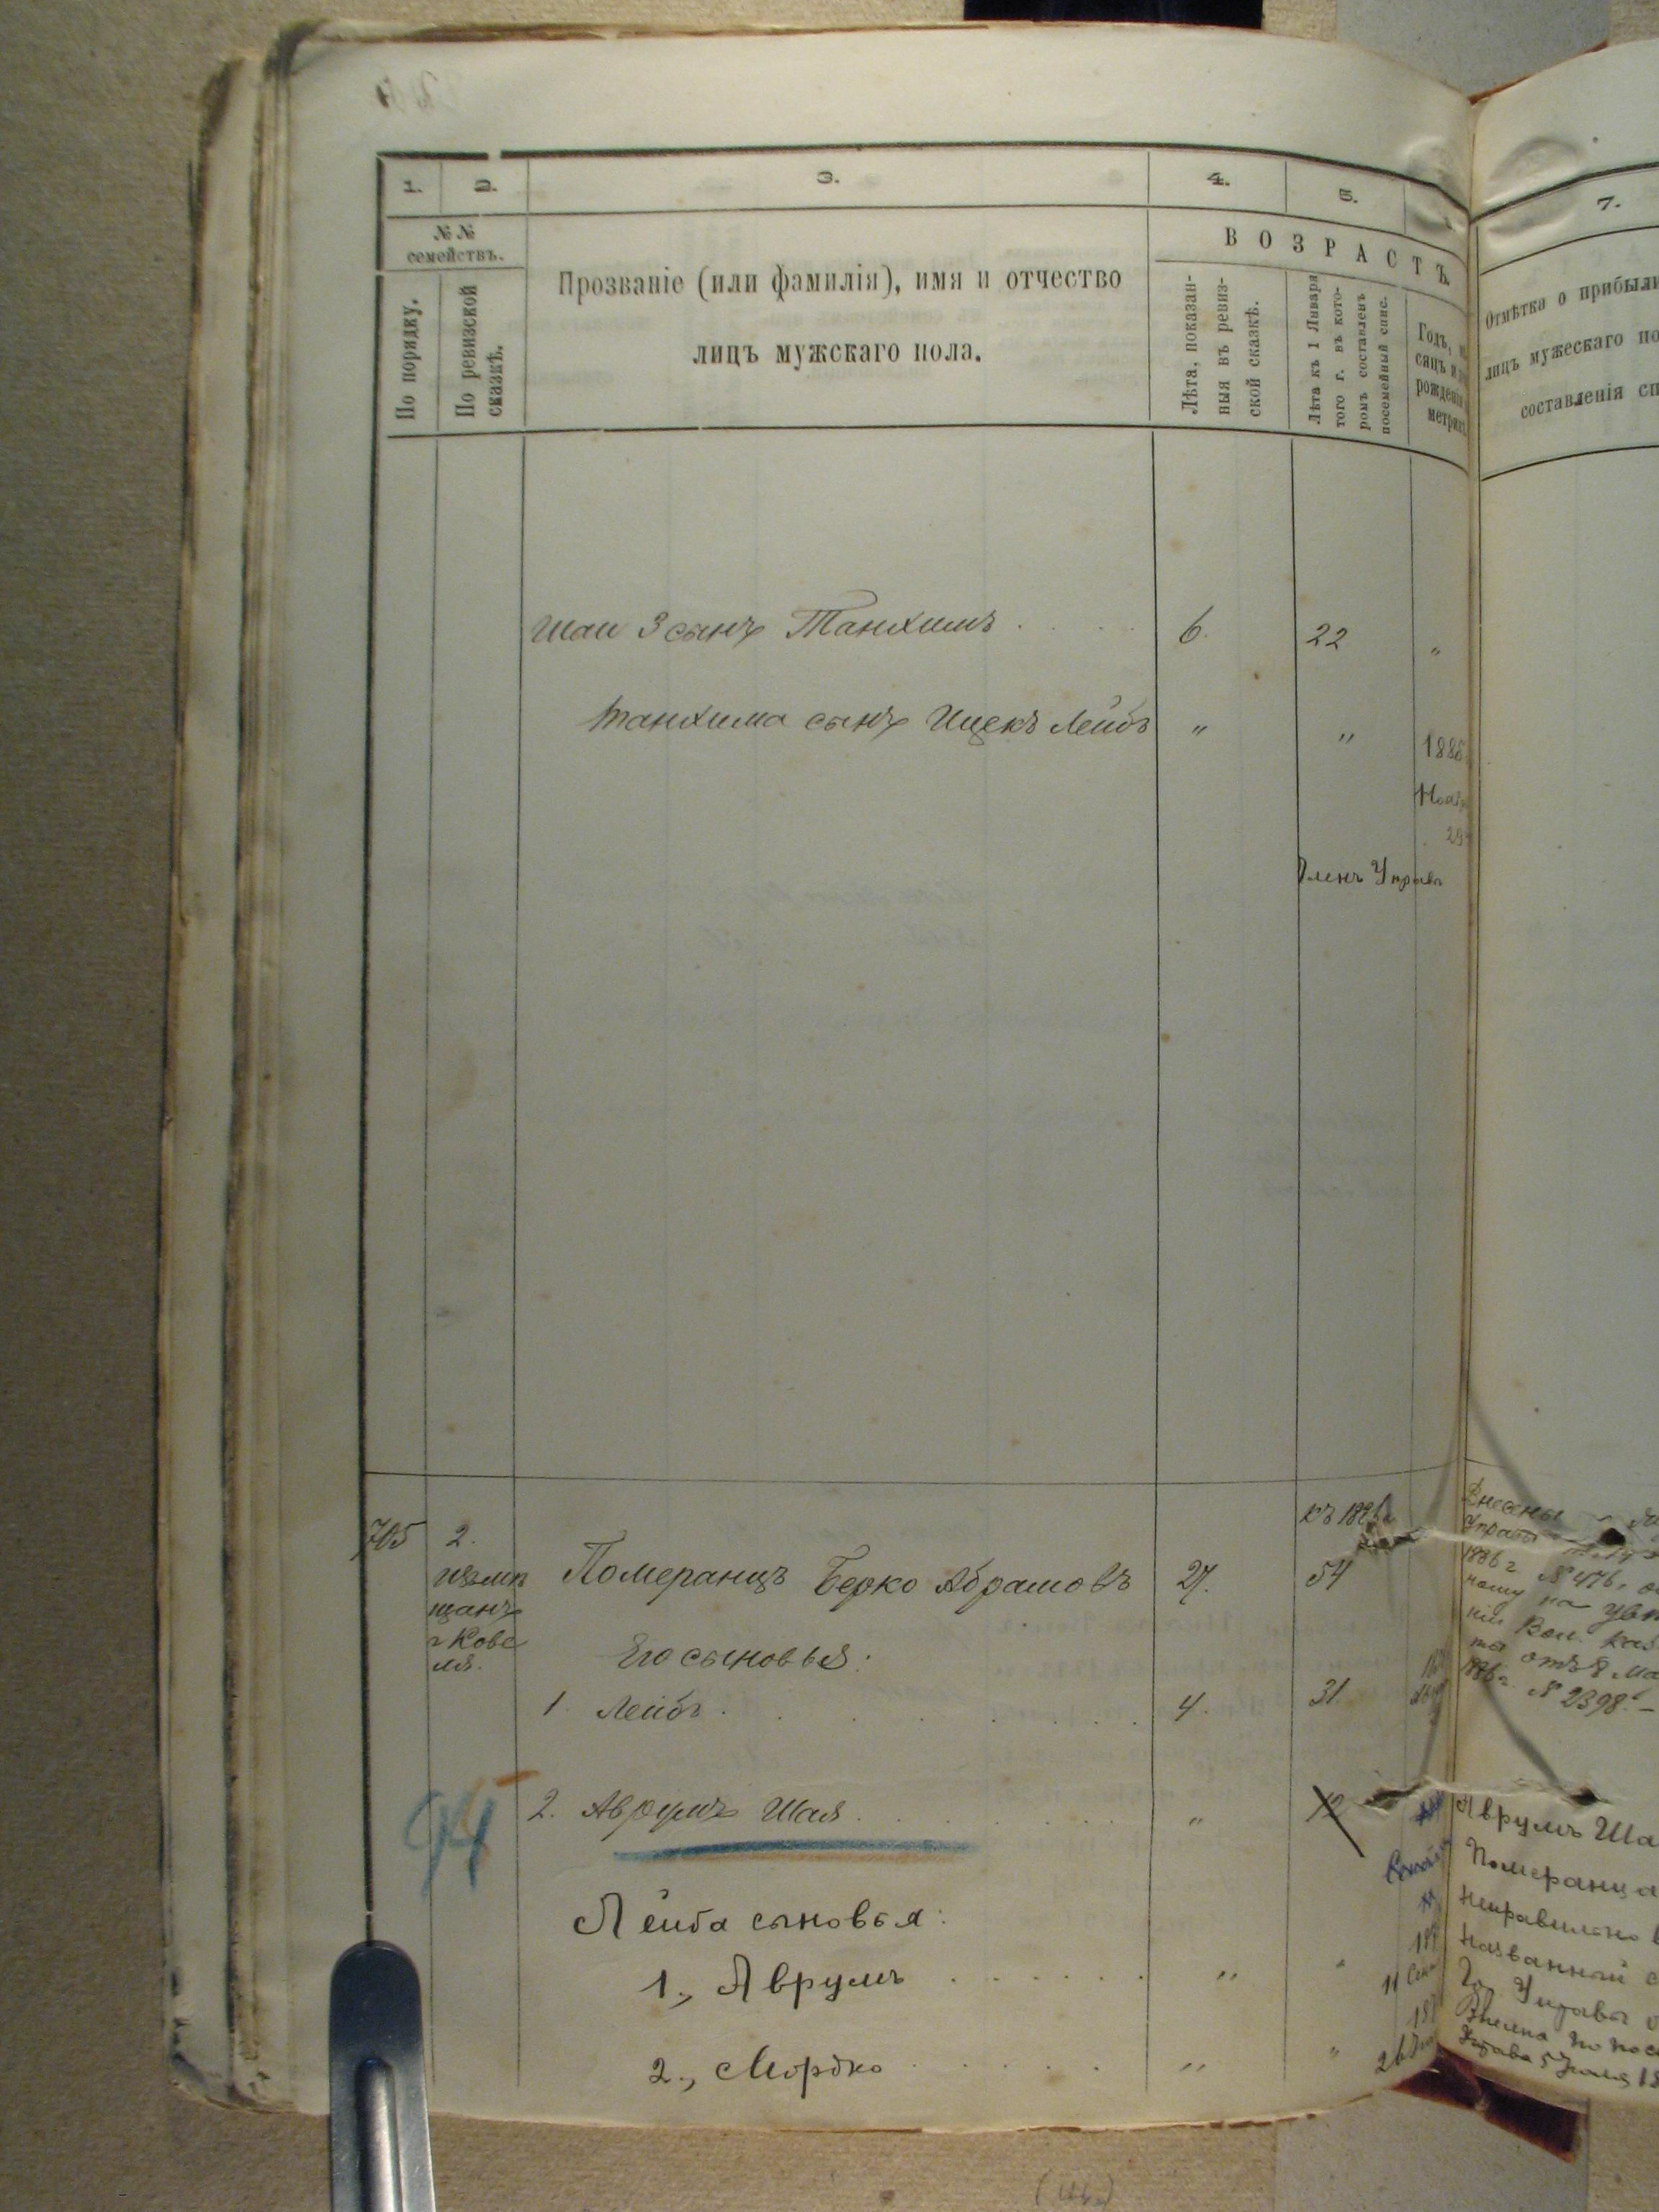 1.
2.
3.
4.
5.
7.
№ №
семействъ.
По порядку.
По ревизской
сказкѣ.
Прозваніе (или фамилія), имя и отчество
лицъ мужскаго пола.
ВОЗРАСТЪ.
Лѣта, показан-
ныя въ ревиз-
ской сказкѣ.
Лѣта къ 1 Января
того г. въ кото-
ромъ составленъ
посемейный спис.
Годъ,
сяцъ и
рожденія
метрик
Отмѣтка о прибыли
лицъ мужескаго по
составленія сп
Шаи 3 сынъ Танхимъ 6. 22 "
Танхима сынъ Ицекъ Лейбъ " " 1885
Нояб
29
Членъ Управы
къ 1886 г
705 2. Померанцъ Берко Абрамовъ 27. 54
изъ мѣ
щанъ
г Кове
ля.
Его сыновья:
1 Лейбъ 4. 31
2. Аврумъ Шая " 12
94
Лейба сыновья:
1., Аврумъ " "
11 Сен
2., Мордко " "
26
Внесены
Управы
1886 г № 476,
на
ніи Вол. Каз
отъ 8 Ма
1886 г. № 2398.
Аврумъ Ша
Померанца
Неправильно
Названный с
Гор. Управы
Внесены по пос
Управы 5 Іюля 18